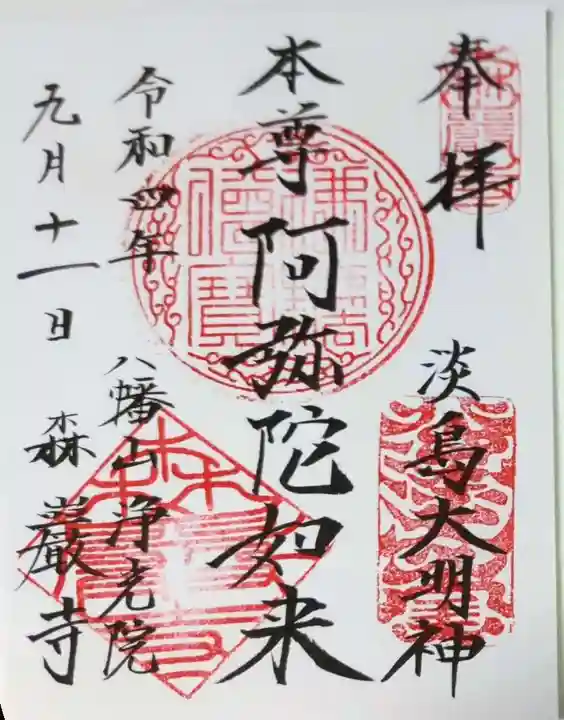 奉拝
淡島大明神
本尊阿弥陀如来
令和四年
八幡山浄光院
九月十一日
森巖寺